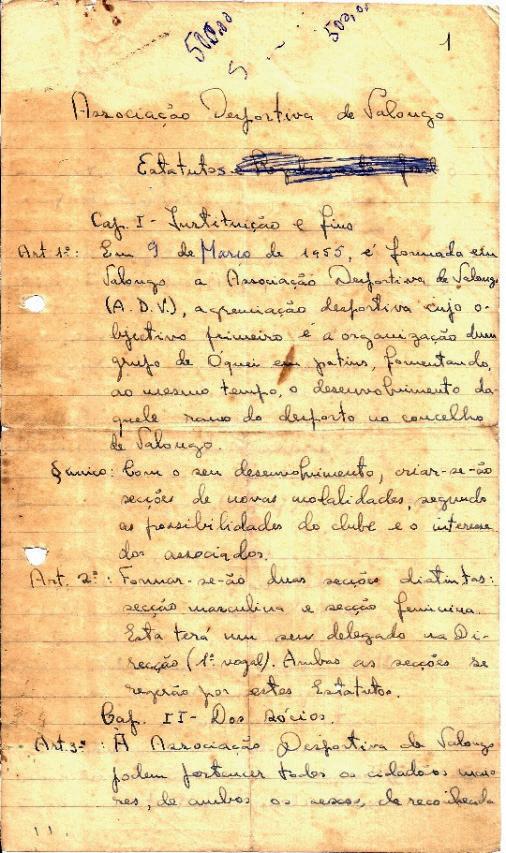 500,00
500,00
5
1
Associação Desportiva de Valongo
Estatutos e
Cap. I - Instituição e fins
Art 1º: Em 9 de Março de 1955, é formada em
Valongo a Associação Desportiva de Valongo
(A. D. V.), agremiação desportiva cujo o-
bjectivo primeiro é a organização dum
grupo de Óquei em patins, fomentando,
ao mesmo tempo, o desenvolvimento da-
quele ramo do desporto no concelho
de Valongo.
§ único: Com o seu desenvolvimento, criar-se-ão
secções de novas modalidades, segundo
as possibilidades do clube e o interesse
dos associados.
Art. 2º: Formar-se-ão duas secções distintas:
secção masculina e secção feminina.
Esta terá um seu delegado na Di-
recção (1º vogal). Ambas as secções se
regerão por estes Estatutos.
Cap. II - Dos sócios.
Art. 3º: À Associação Desportiva de Valongo
podem pertencer todos os cidadãos maio-
res, de ambos os sexos, de reconhecida